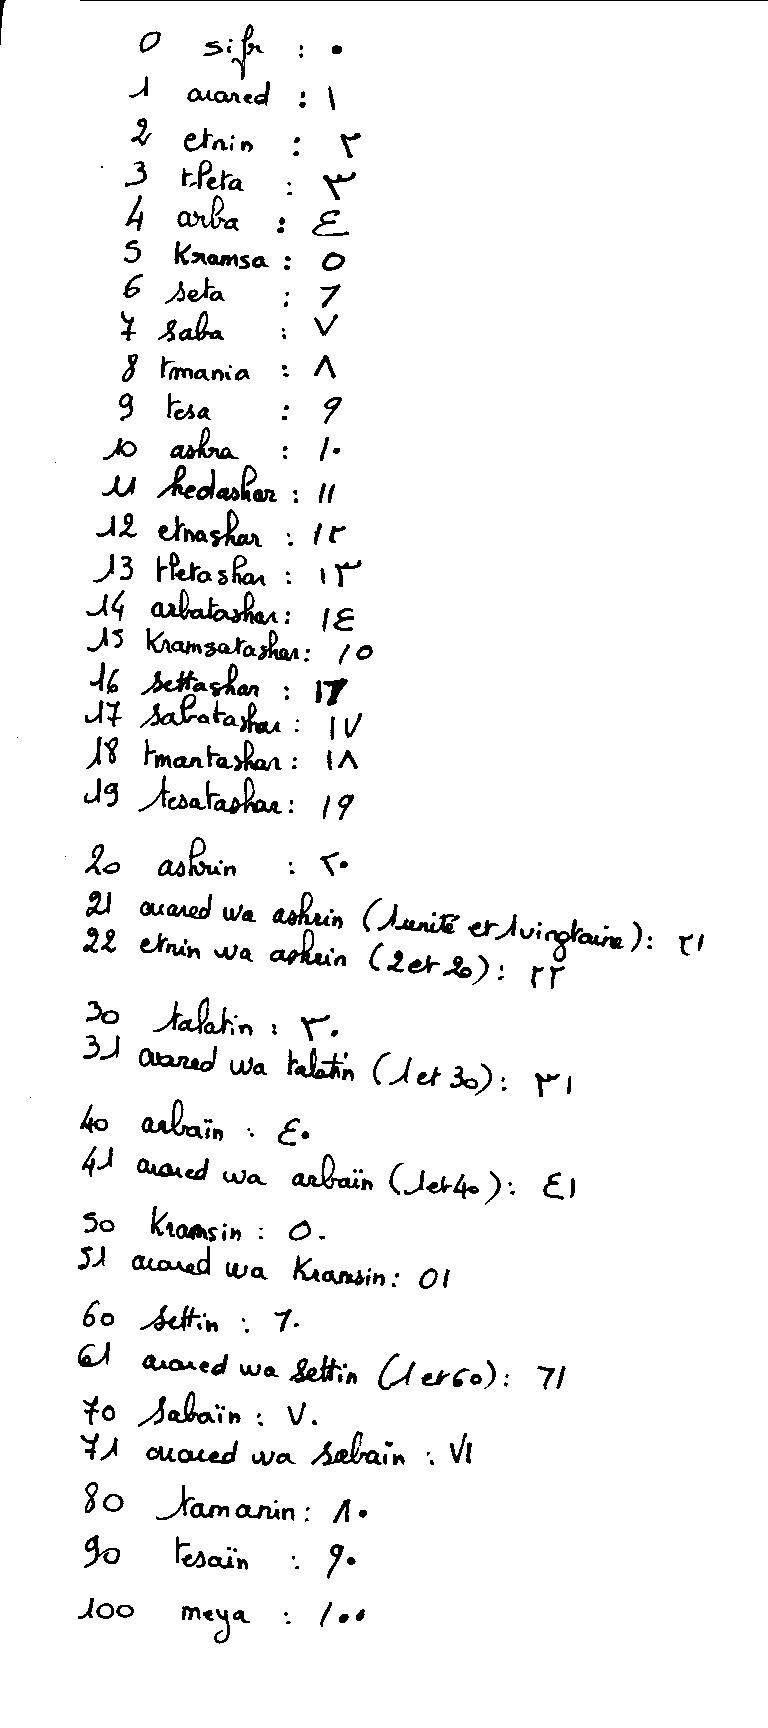 0 sifr : ٠
1 ouared : ١
2 etnin : ٢
3 tleta : ٣
4 arba : ٤
5 Kramsa : ٥
6 seta : ٦
7 saba : ٧
8 tmania : ٨
9 tesa : ٩
10 ashra : ١٠
11 hedashar : ١١
12 etnashar : ١٢
13 tletashar : ١٣
14 arbatashar : ١٤
15 Kramsatashar : ١٥
16 settashar : ١٦
17 sabatashar : ١٧
18 tmantashar : ١٨
19 tesatashar : ١٩
20 ashrin : ٢٠
21 ouared wa ashrin (1 unité et 1 vingtaine) : ٢١
22 etnin wa ashrin (2 et 20) : ٢٢
30 talatin : ٣٠
31 ouared wa talatin (1 et 30) : ٣١
40 arbaïn : ٤٠
41 ouared wa arbaïn (1 et 40) : ٤١
50 Kramsin : ٥٠
51 ouared wa Kramsin : ٥١
60 settin : ٦٠
61 ouared wa settin (1 et 60) : ٦١
70 sabaïn : ٧٠
71 ouared wa sabaïn : ٧١
80 tamanin : ٨٠
90 tesaïn : ٩٠
100 meya : ١٠٠